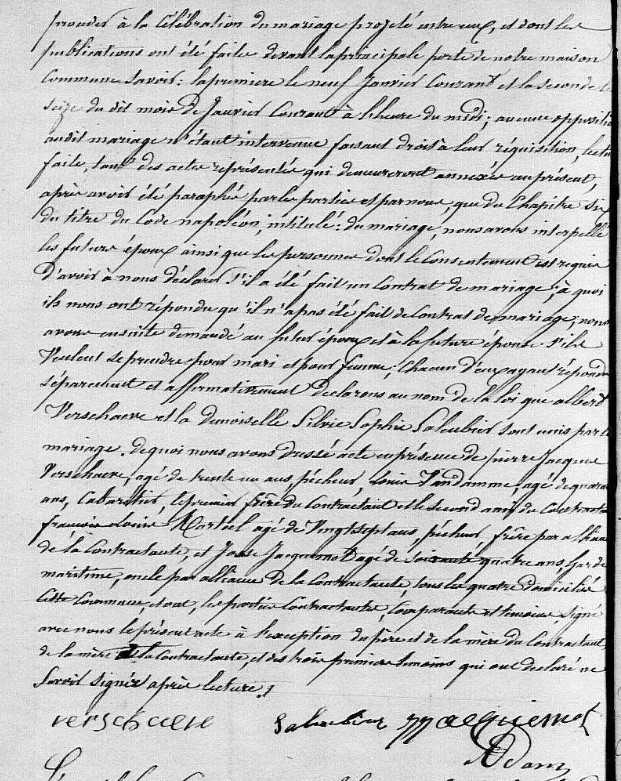 proceder à la Célébration du mariage projeté entre eux, et dont les
publications ont été faites devant la principale porte de notre maison
Commune Savoir: la premiere le neuf Janvier Courant et la seconde le
seize du dit mois de Janvier Courant à l'heure du midi; aucune opposition
audit mariage n'étant intervenue faisant droit à leur réquisition, lecture
faite, tant des actes représentés qui demeureront annexés au présent,
après avoir été paraphés par les parties et par nous, que du Chapitre six
du titre du Code napoléon, intitulé: du mariage, nous avons interpellé
les futurs époux ainsi que les personnes dont le Consentement est requis
d'avoir à nous déclarer S'il a été fait un Contrat de mariage, à quoi
ils nous ont répondu qu'il n'a pas été fait de Contrat de mariage, nous
avons ensuite demandé au futur époux et à la future épouse S'ils
Veulent se prendre pour mari et pour femme, Chacun d'eux ayant répondu
Séparément et affirmativement declarons au nom de la loi que albert
Verschaeve et la demoiselle Silvie Sophie Salubier sont unis par le
mariage. de quoi nous avons dressé acte en présence de pierre Jacques
Verschaeve, agé de trente un ans, pêcheur, Louis Vandamme agé de quarante
ans, Cabaretier, le premier frère du Contractant et le second ami du Contractant
francois Louis Martel agé de Vingt sept ans, pêcheur, frère par alliance
de la Contractante, et Jacquemot agé de soixante quatre ans garde
maritime, oncle par alliance de la Contractante, tous les quatre domiciliés
Cette Commune et ont, les parties Contractantes, Comparants et temoins, Signé
avec nous le présent acte à l'exception du père et de la mère du Contractant,
de la mère de la Contractante, et des trois premiers temoins qui ont declaré ne
Savoir Signer après lecture.
verschaeve Salubier Jacquemot
Adam